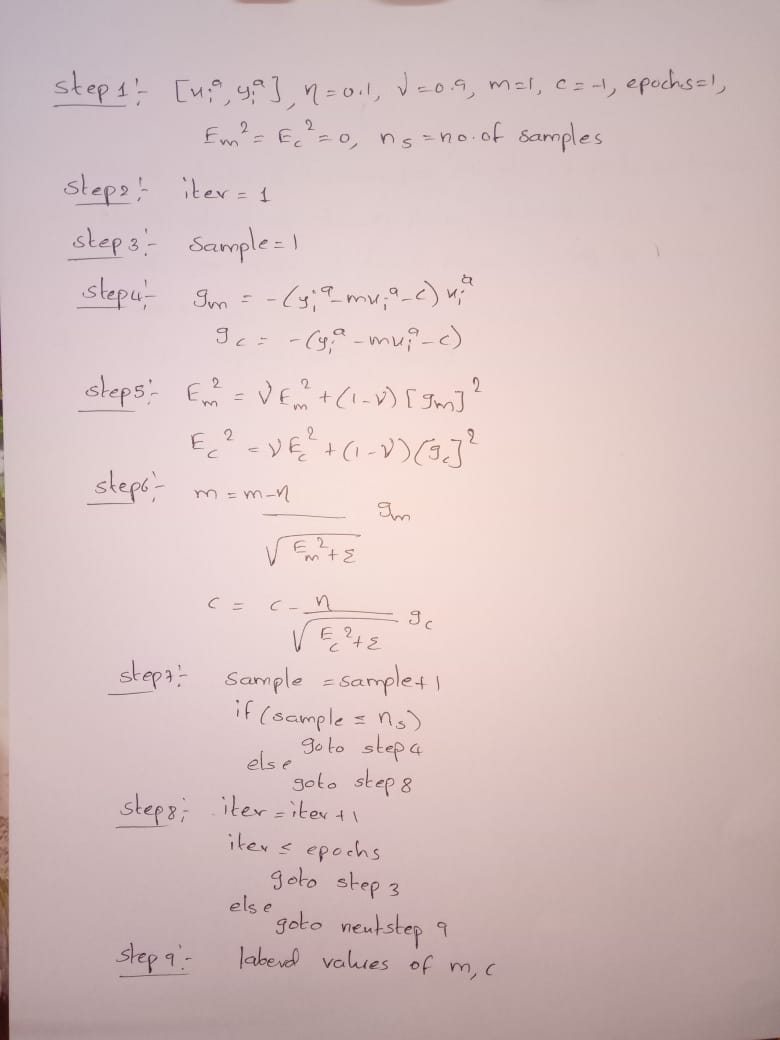 step 1:- [xᵢᵃ, yᵢᵃ], η=0.1, γ=0.9, m=1, c=-1, epochs=1,
Em² = Ec² = 0, ns = no. of samples
step2:- iter = 1
step 3:- Sample = 1
step4:- gm = -(yᵢᵃ-mxᵢᵃ-c) xᵢᵃ
gc = -(yᵢᵃ-mxᵢᵃ-c)
step5:- Em² = γEm² + (1-γ) [gm]²
Ec² = γEc² + (1-γ) (gc]²
step6:- m = m-η / √(Em²+ε) gm
c = c - η / √(Ec²+ε) gc
step7:- sample = sample+1
if (sample ≤ ns)
goto step 4
else
goto step 8
step8:- iter = iter +1
iter ≤ epochs
goto step 3
else
goto next step 9
step 9:- labeled values of m, c